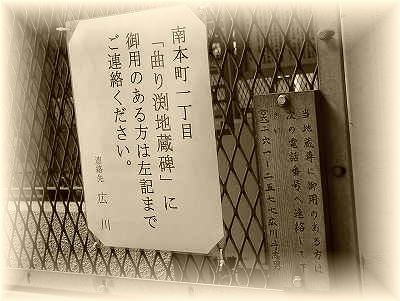 南本町一丁目
「曲り渕地蔵碑」に
御用のある方は左記まで
ご連絡ください。
連絡先 広川
当地蔵尊に御用のある方は
次の電話番号へ連絡して下
さい
二六一―二五七七広川